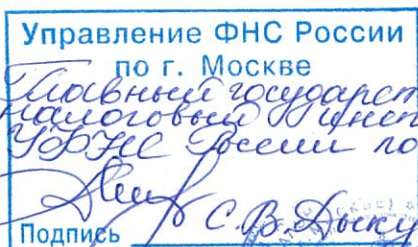 Управление ФНС России
по г. Москве
Главный государст
налоговый инсп
УФНС России по
С.В. Дыку
Подпись